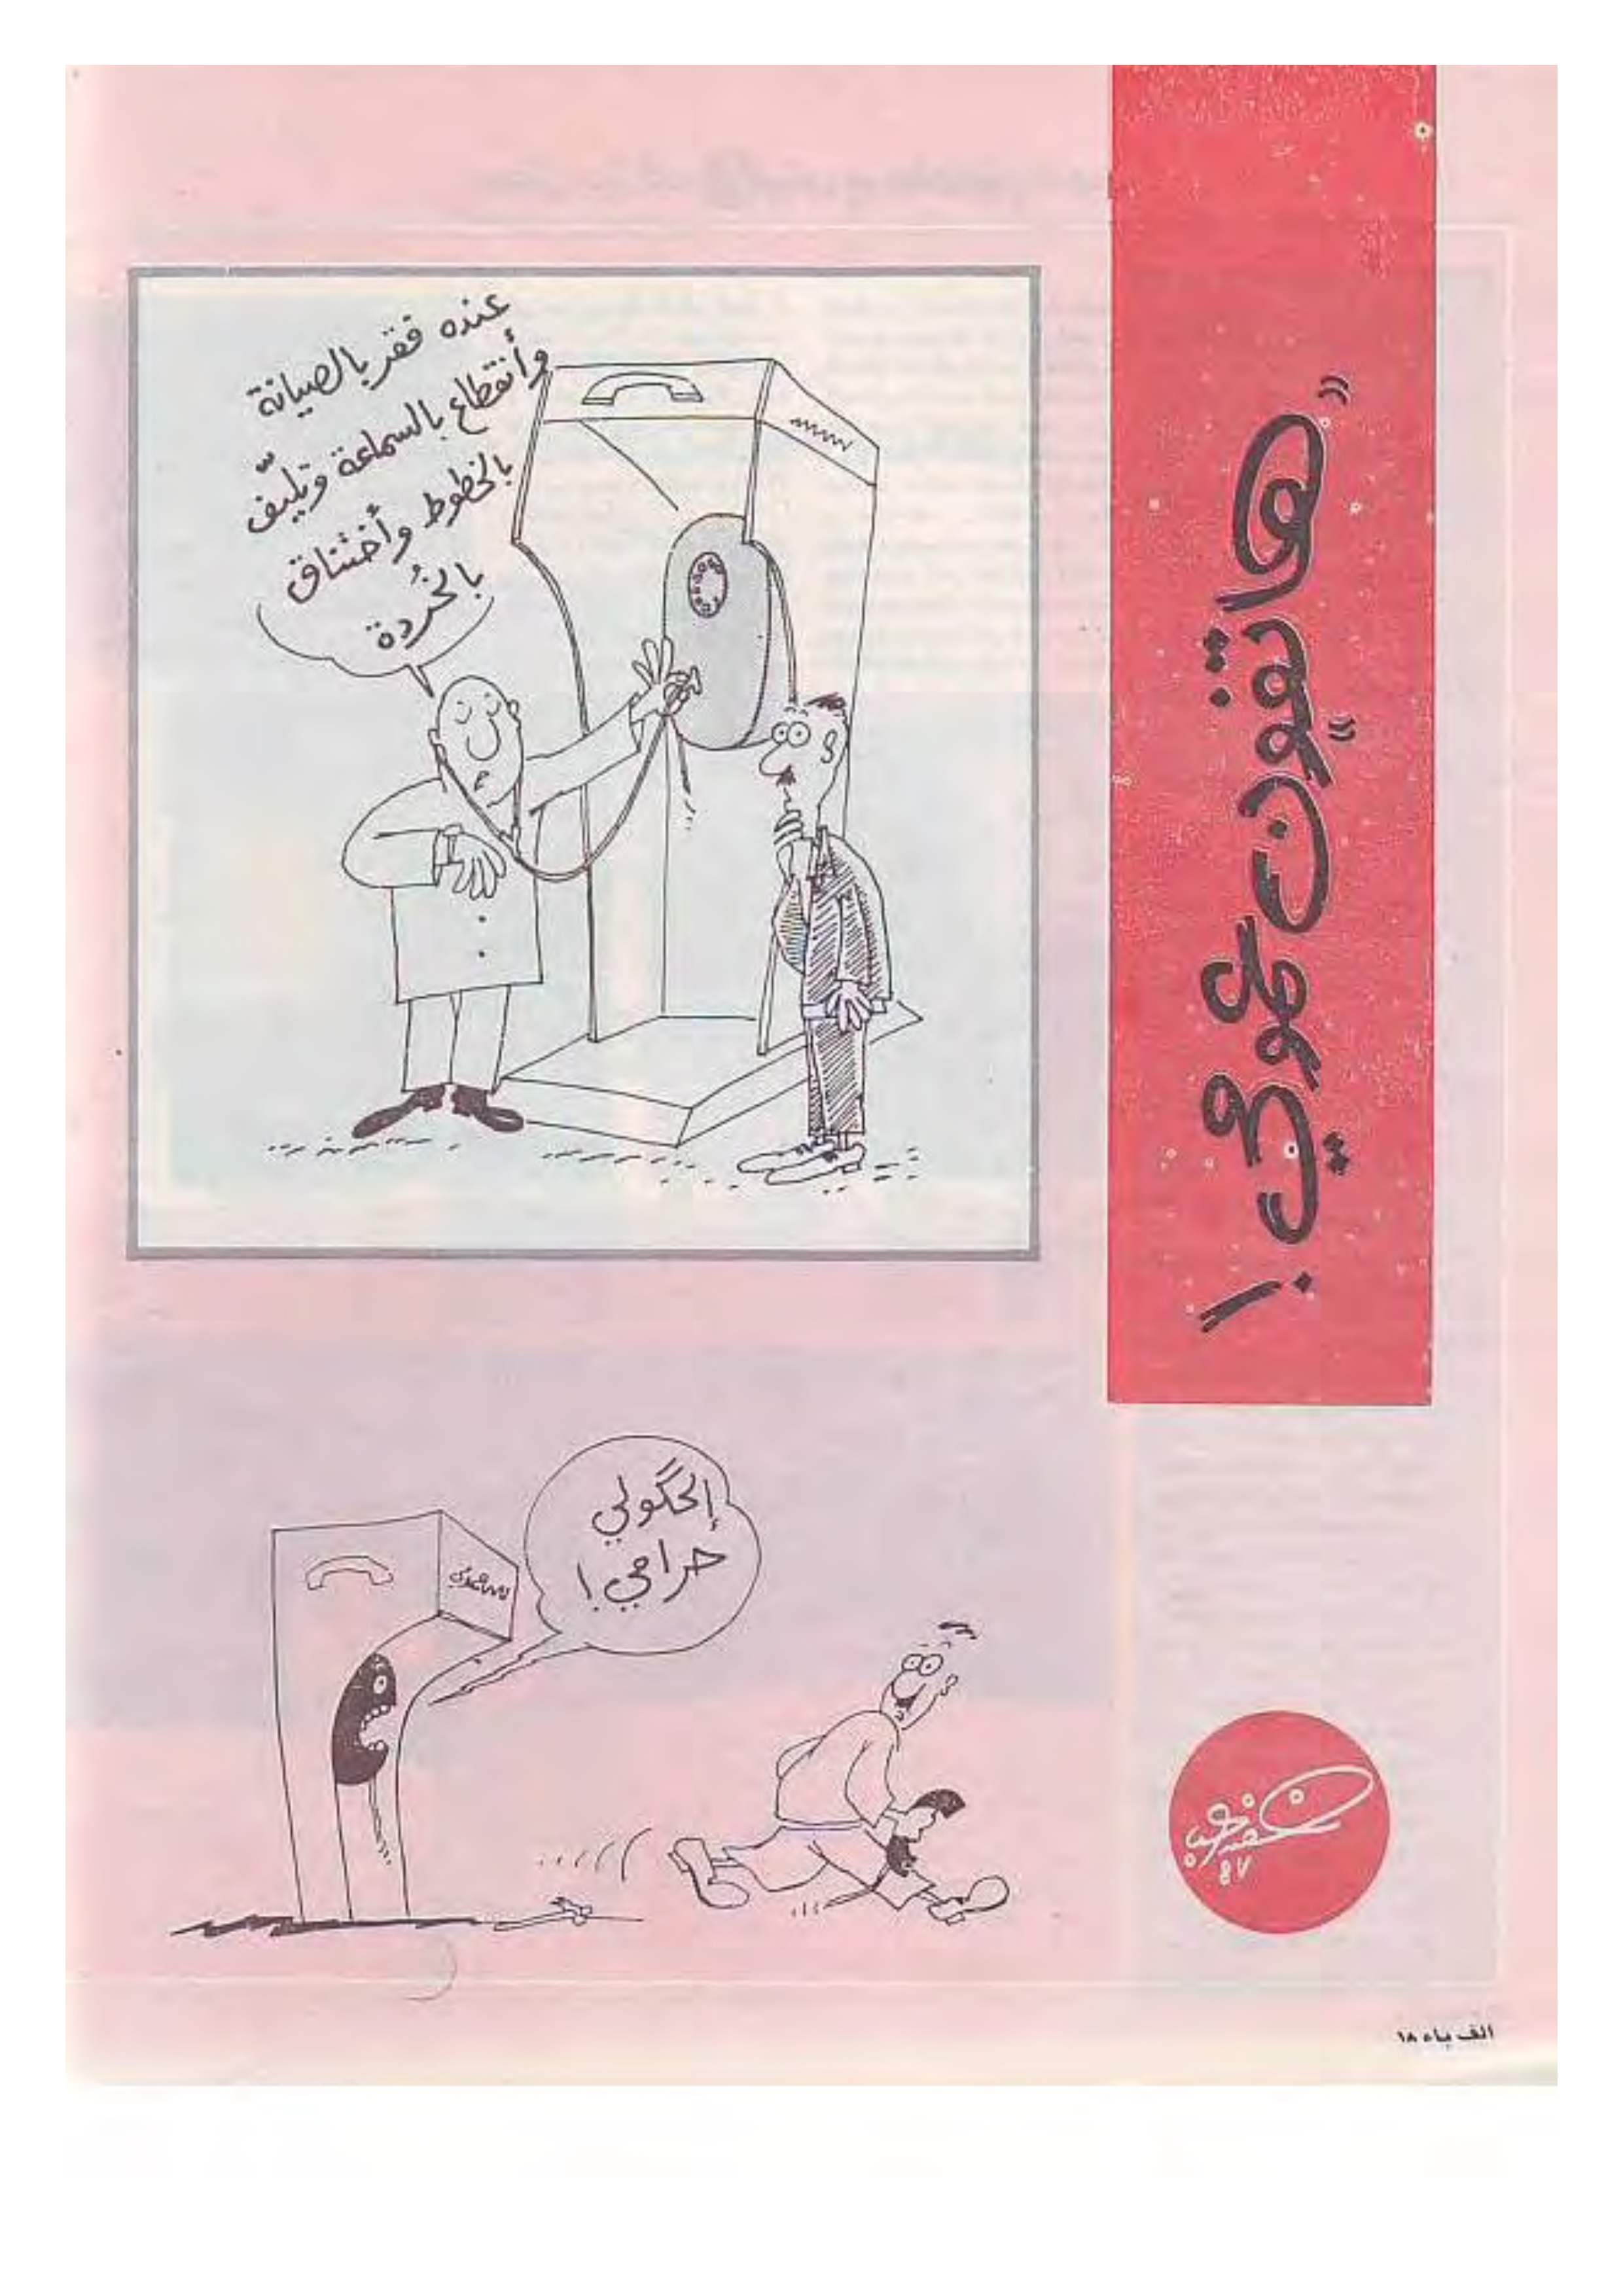 «هاتفون» عمومي !
عنده فقر بالصيانة
وأنقطاع بالسماعة وتليّف
بالخطوط وأختناق
بالخُردة
إلحگولي
حرامي !
خضير
٨٧
الف باء ١٨